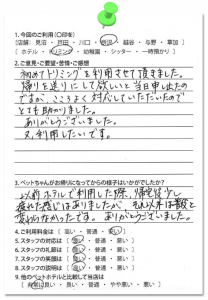 1. 今回のご利用（〇印を）
[店舗：見沼 ・ 戸田 ・ 川口 ・ 所沢 ・ 越谷 ・ 与野 ・ 草加 ]
[ ホテル ・ トリミング ・ 幼稚園 ・ シッター ・ 一時預かり ]
2. ご意見・ご要望・苦情・ご感想
初めてトリミングを利用させて頂きました。
帰りを送りにして欲しいと当日申し出たの
ですが、こころよく対応していただいたので
とても助かりました。
ありがとうございました。
又、利用したいです。
3. ペットちゃんがお帰りになってからの様子はいかがでしたか？
以前ホテルで利用した際、帰宅後少し
疲れた感じはありましたが、それ以外は普段と
変わらなかったです。ありがとうございました。
4. ご利用料金は [ 高い ・ 普通 ・ 安い ]
5. スタッフの対応は [ 良い ・ 普通 ・ 悪い ]
6. スタッフの礼節は [ 良い ・ 普通 ・ 悪い ]
7. スタッフの説明は [ 良い ・ 普通 ・ 悪い ]
8. スタッフの服装は [ 良い ・ 普通 ・ 悪い ]
9. 他のペットホテルと比較して当店は
[ 非常に良い ・ 良い ・ 普通 ・ やや悪い ・ 悪い ]